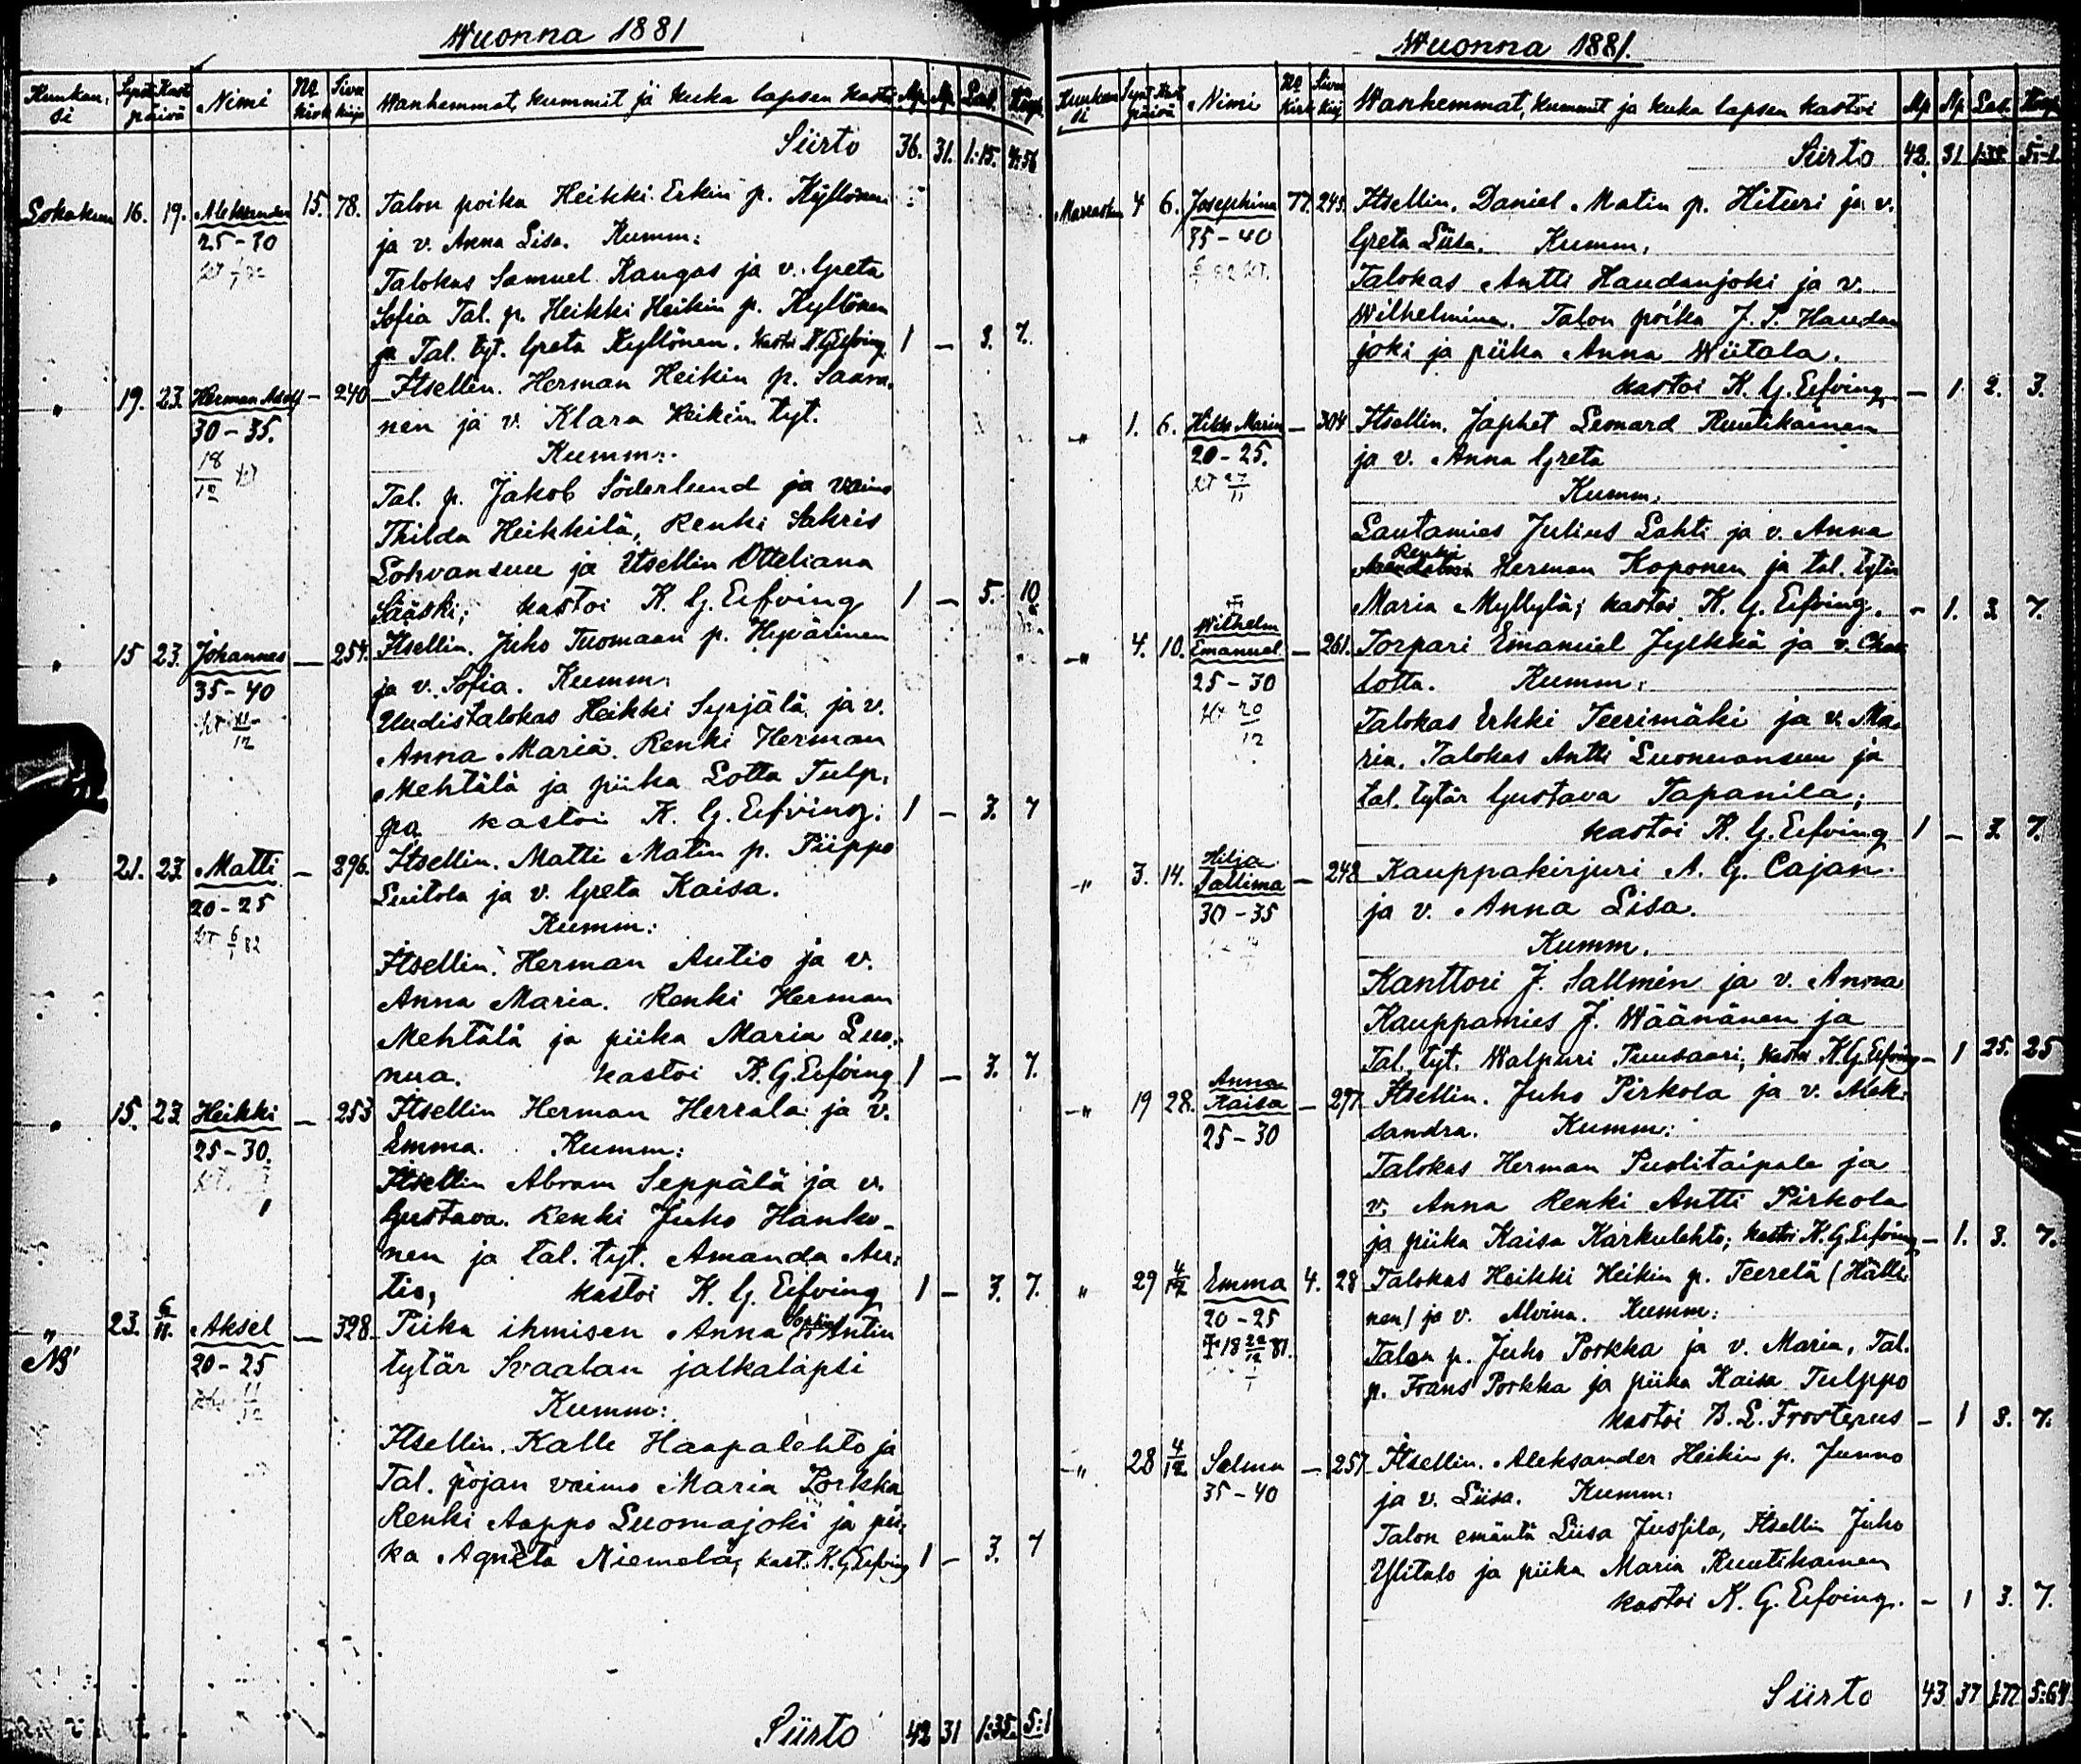 Wuonna 1881
Kuukau- Synt. Kast. Nimi No Sivu Wanhemmat, kummit ja kuka lapsen kasti Mp. Np. Lai. Köyh.
si päivä kirk kirja
Siirto 36. 31. 1:15. 4:56
Lokakuu 16. 19. Aleksander 15. 78. Talon poika Heikki Erkin p. Kyllönen
25-30 ja v. Anna Lisa. Kumm:
Talokas Samuel Kangas ja v. Greta
Sofia Tal. p. Heikki Heikin p. Kyllönen
ja Tal. tyt. Greta Kyllönen. Kastoi K. G. Eefving. 1 — 3. 7.
" 19. 23. Herman Adolf — 240 Itsellin. Herman Heikin p. Saara-
30-35. nen ja v. Klara Heikin tyt.
18/12 Kumm:
Tal. p. Jakob Söderlund ja vaimo
Thilda Heikkilä, Renki Sakris
Lohvansuu ja Itsellin Otteliana
Sääski; kastoi K. G. Eefving 1 — 5. 10
" 15 23. Johannes — 254. Itsellin. Juho Tuomaan p. Hyvärinen
35-40 ja v. Sofia. Kumm:
Uudistalokas Heikki Syrjälä ja v.
Anna Maria. Renki Herman
Mehtälä ja piika Lotta Tulp-
po kastoi K. G. Eefving. 1 — 3. 7
" 21. 23. Matti — 296. Itsellin. Matti Matin p. Piippo
20-25 Luitola ja v. Greta Kaisa.
6/1 82 Kumm:
Itsellin. Herman Autio ja v.
Anna Maria. Renki Herman
Mehtälä ja piika Maria Luo-
nua. kastoi K. G. Eefving 1 — 3. 7.
" 15. 23. Heikki — 253 Itsellin Herman Herrala ja v.
25-30. Emma. Kumm:
Itsellin Abram Seppälä ja v.
Gustava. Renki Juho Hanko-
nen ja tal. tyt. Amanda Au-
tio, kastoi K. G. Eefving 1 — 3. 7.
" 23. 6/11. Aksel — 328. Piika ihmisen Anna Antin
NB 20-25 tytär Svaalan jalkalapsi
Kumm:
Itsellin. Kalle Haapalehto ja
Tal. pojan vaimo Maria Porkka
Renki Aappo Luomajoki ja pii-
ka Agneta Niemelä, kast. K. G. Eefving 1 — 3. 7
Siirto 42 31 1:35. 5:1
Wuonna 1881.
Kuukau Synt. Kast. Nimi No Sivu Wanhemmat, kummit ja kuka lapsen kastoi Mp Np Lai. Köyh.
si päivä Kirk Kirj
Siirto 42. 31 1:35 5:-1.
Marraskuu 4 6. Josephina 77. 245. Itsellin. Daniel Matin p. Hituri ja v.
35-40 Greta Liisa. Kumm.
Talokas Antti Haudanjoki ja v.
Wilhelmina. Talon poika J. P. Haudan
joki ja piika Anna Wiitala.
kastoi K. G. Eefving — 1. 2. 3.
—" 1. 6. Hilda Maria — 304 Itsellin. Japhet Leonard Ruutikainen
20-25. ja v. Anna Greta
27/11 Kumm.
Lautamies Julius Lahti ja v. Anna
Renki
Herman Koponen ja tal. tytär
Maria Myllylä; kastoi K. G. Eefving. — 1. 3 7.
Wilhelm
—" 4. 10. Emanuel — 261. Torpari Emanuel Jylkkä ja v. Char
25-30 lotta. Kumm.
20/12 Talokas Erkki Teerimäki ja v. Ma-
ria. Talokas Antti Luonuansuu ja
tal. tytär Gustava Tapanila;
kastoi K. G. Eefving 1 — 3. 7.
Hilja
—" 3. 14. Sallima — 248 Kauppakirjuri A. G. Cajan
30-35 ja v. Anna Lisa.
Kumm.
Kanttori J. Sallmén ja v. Anna
Kauppamies J. Wäänänen ja
Tal. tyt. Walpuri Tuusaari; kastoi K. G. Eefving — 1 25. 25
Anna
—" 19 28. Kaisa — 297. Itsellin. Juho Pirkola ja v. Alek-
25-30 sandra. Kumm:
Talokas Herman Puolitaipale ja
v. Anna Renki Antti Pirkola
ja piika Kaisa Karkulehto; kastoi K. G. Eefving — 1. 3. 7.
" 29 4/12 Emma 4. 28 Talokas Heikki Heikin p. Teerelä (Hälli-
20-25 nen) ja v. Alvina. Kumm:
18 22/12 81. Talon p. Juho Porkka ja v. Maria, Tal.
p. Frans Porkka ja piika Kaisa Tulppo
kastoi B. L. Frosterus — 1 3. 7.
—" 28 4/12 Selma — 257 Itsellin. Aleksander Heikin p. Junno
35-40 ja v. Liisa. Kumm:
Talon emäntä Liisa Jussila, Itsellin Juho
Ylitalo ja piika Maria Ruutikainen
kastoi K. G. Eefving. — 1 3. 7.
Siirto 43 37 1:77 5:64